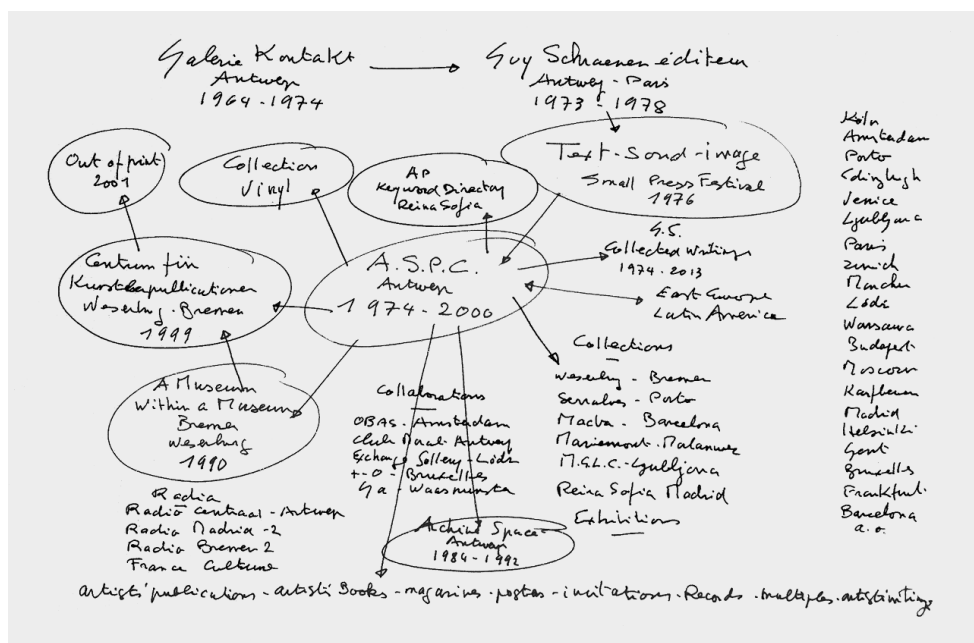 Galerie Kontakt
Antwerp
1964-1974
Guy Schraenen éditeur
Antwerp - Paris
1973 - 1978
Out of print
2001
Collection
Vinyl
AP
Keyword Directory
Reina Sofia
Text-Sond-image
Small Press Festival
1976
Centrum für
Weserburg. Bremen
1999
A.S.P.C.
Antwerp
1974-2000
G.S.
Collected Writings
1974-2013
East Europe
Latin America
A Museum
Within a Museum
Bremen
Weserburg
1990
Collaborations
OBAS - Amsterdam
Club Antwerp
Exchange Gallery - Lódz
+-0 - Bruxelles
Ga - Waasmunster
Collections
Weserburg - Bremen
Serralves - Porto
Macba - Barcelona
Mariemont
M.G.L.C. - Ljubljana
Reina Sofia Madrid
Exhibitions
Radia
Radio Centraal - Antwerp
Radio Madrid - 2
Radio Bremen 2
France Culture
Archive Space
Antwerp
1984 - 1992
artists' publications - artists' Books - magazines - posters - invitations - Records - multiples -
Köln
Amsterdam
Porto
Edinburgh
Venice
Ljubljana
Paris
Zürich
München
Lódz
Warsawa
Budapest
Moscow
Madrid
Helsinki
Gent
Bruxelles
Frankfurt
Barcelona
a.o.